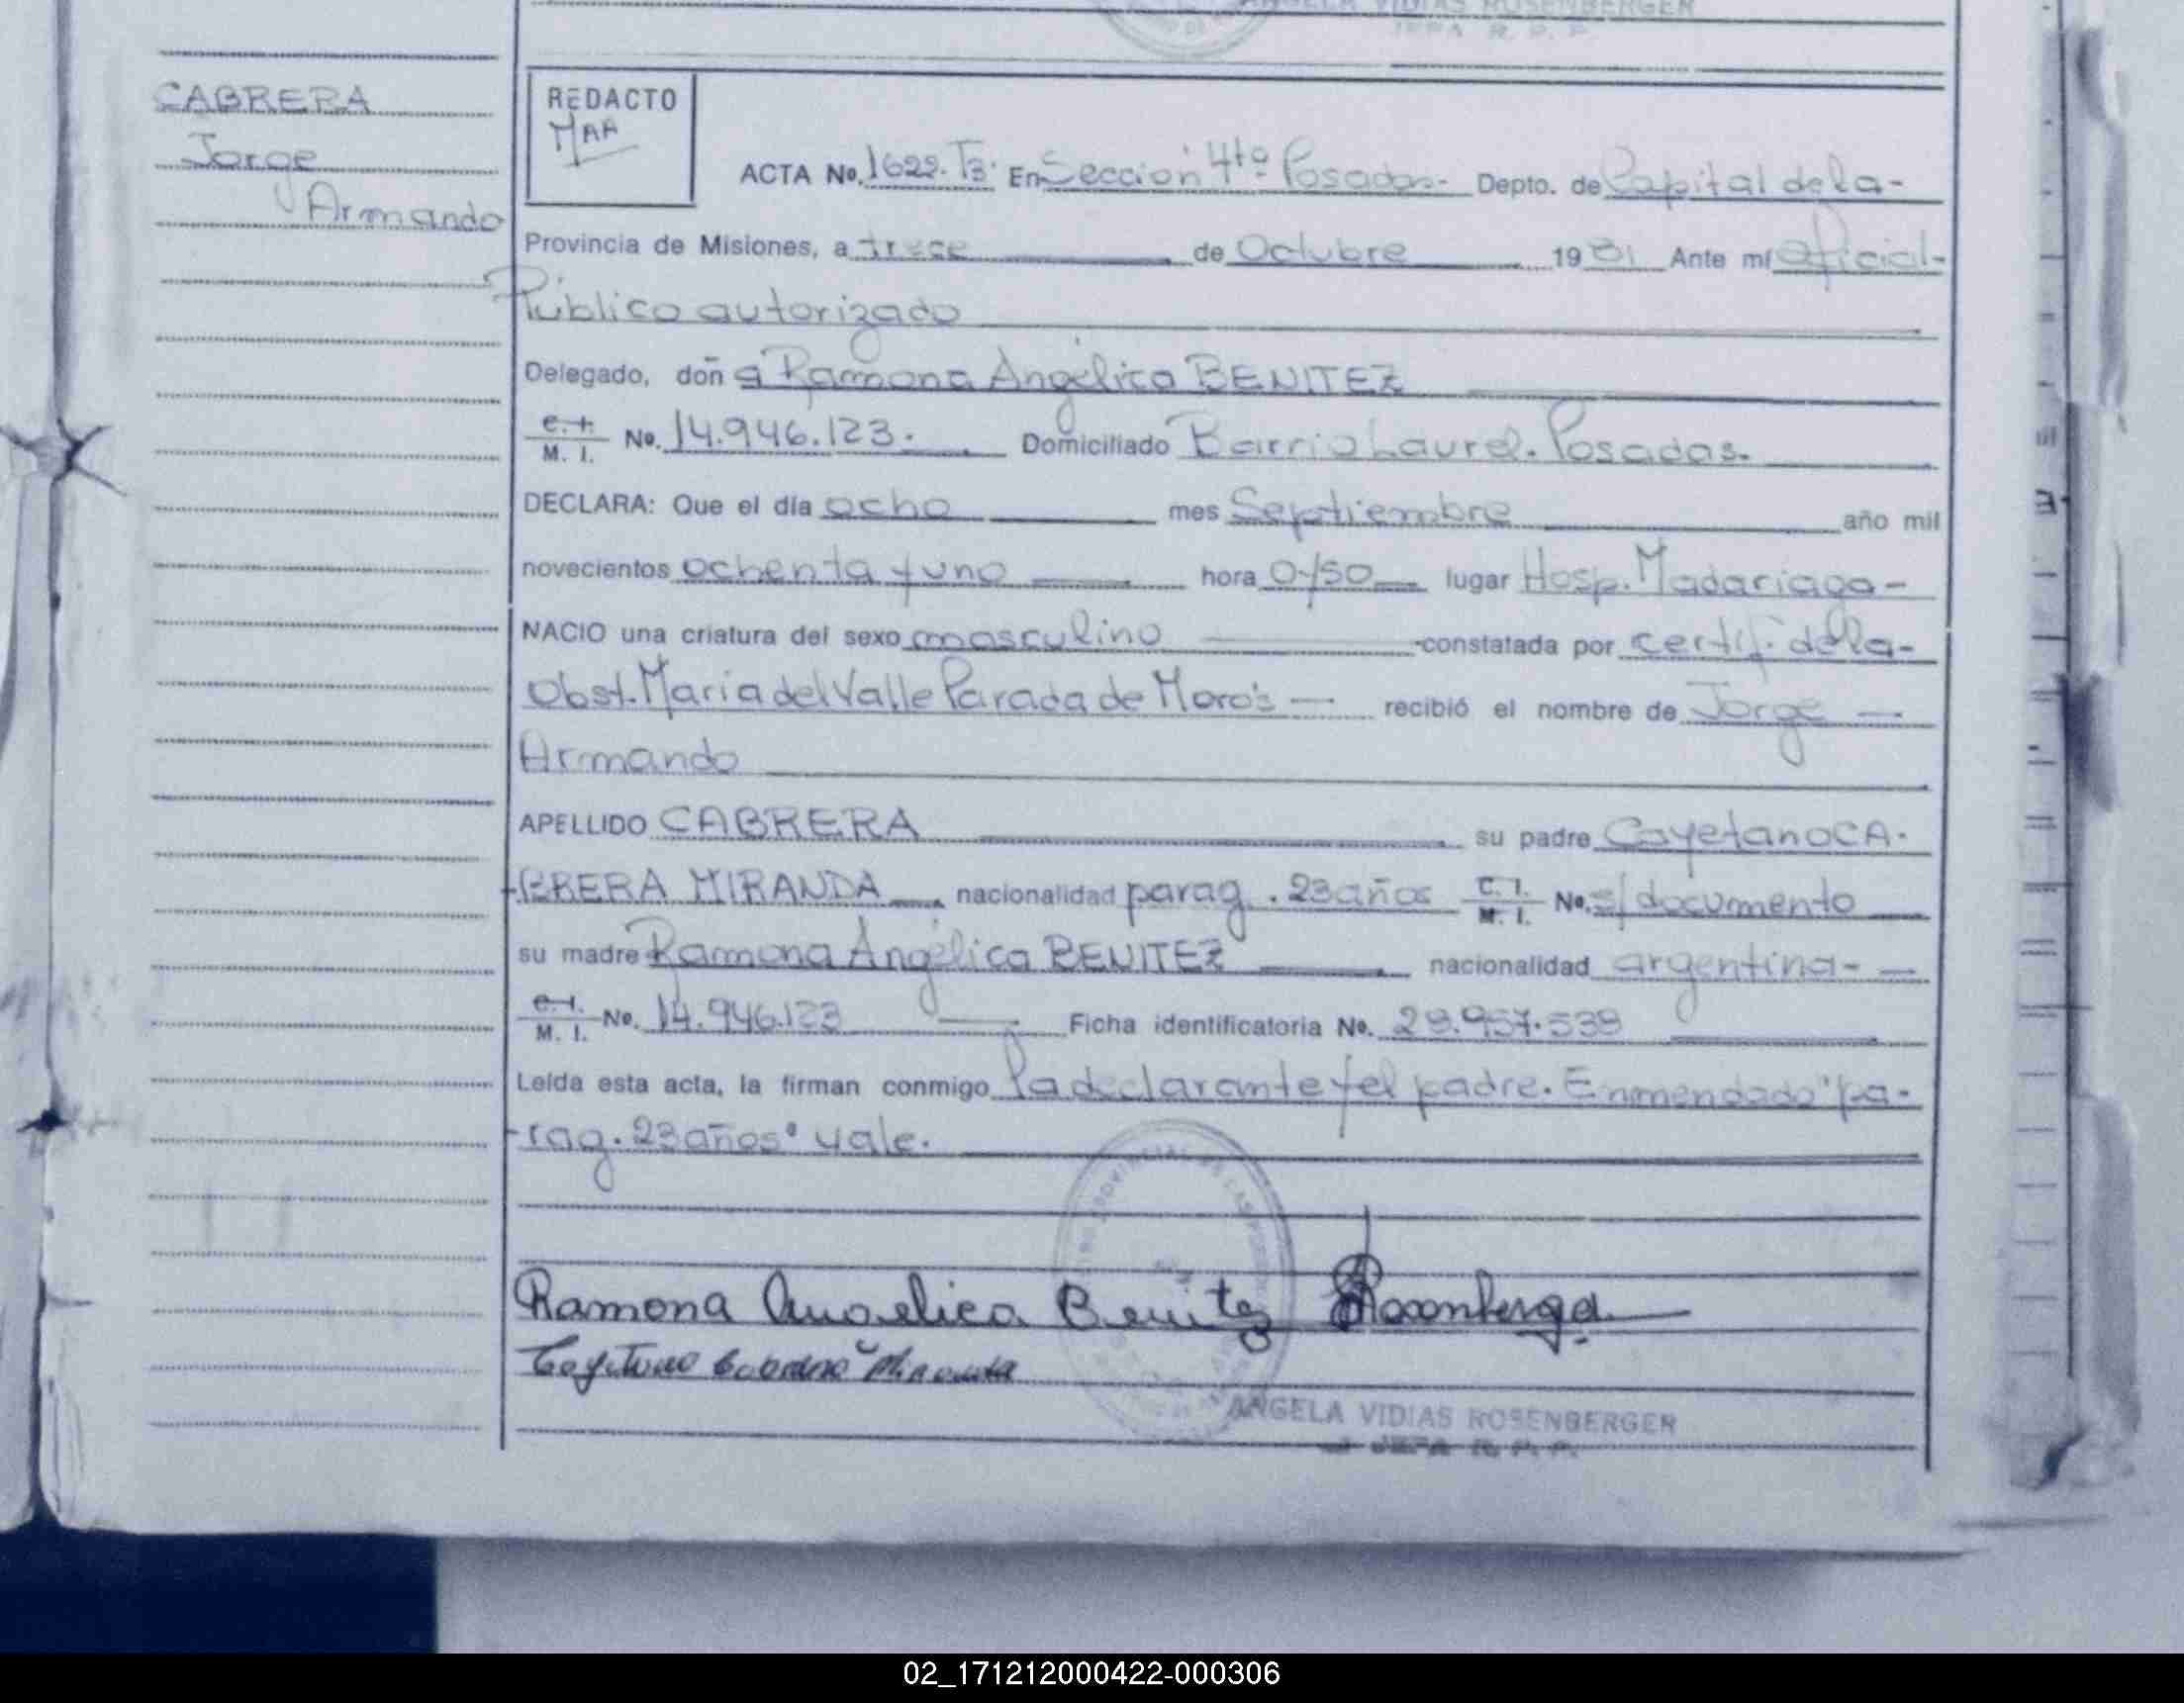 ANGELA VIDIAS ROSENBERGER
JEFA R. P. P.
CABRERA
Jorge
Armando
REDACTO
MAA
ACTA No. 1622. T3. En Sección 4ta Posadas.- Depto. de Capital de la-
Provincia de Misiones, a trece de Octubre 1981 Ante mí Oficial-
Público autorizado
Delegado, doñ a Ramona Angélica BENITEZ
C. I. M. I. No. 14.946.123. Domiciliado Barrio Laurel. Posadas.
DECLARA: Que el día ocho mes Septiembre año mil
novecientos ochenta y uno hora 0/50 lugar Hosp. Madariaga-
NACIO una criatura del sexo masculino constatada por certif. de la-
Obst. María del Valle Parada de Moro's recibió el nombre de Jorge
Armando
APELLIDO CABRERA su padre Cayetano CA-
-BRERA MIRANDA nacionalidad parag. 23 años C. I. M. I. No. s/documento
su madre Ramona Angélica BENITEZ nacionalidad argentina-
C. I. M. I. No. 14.946.123 Ficha identificatoria No. 28.957.538
Leída esta acta, la firman conmigo la declarante y el padre. Enmendado "pa-
-rag. 23 años" vale.
Ramona Angelica Benitez
Cayetano Cabrera Miranda
ANGELA VIDIAS ROSENBERGER
JEFA R. P. P.
02_171212000422-000306